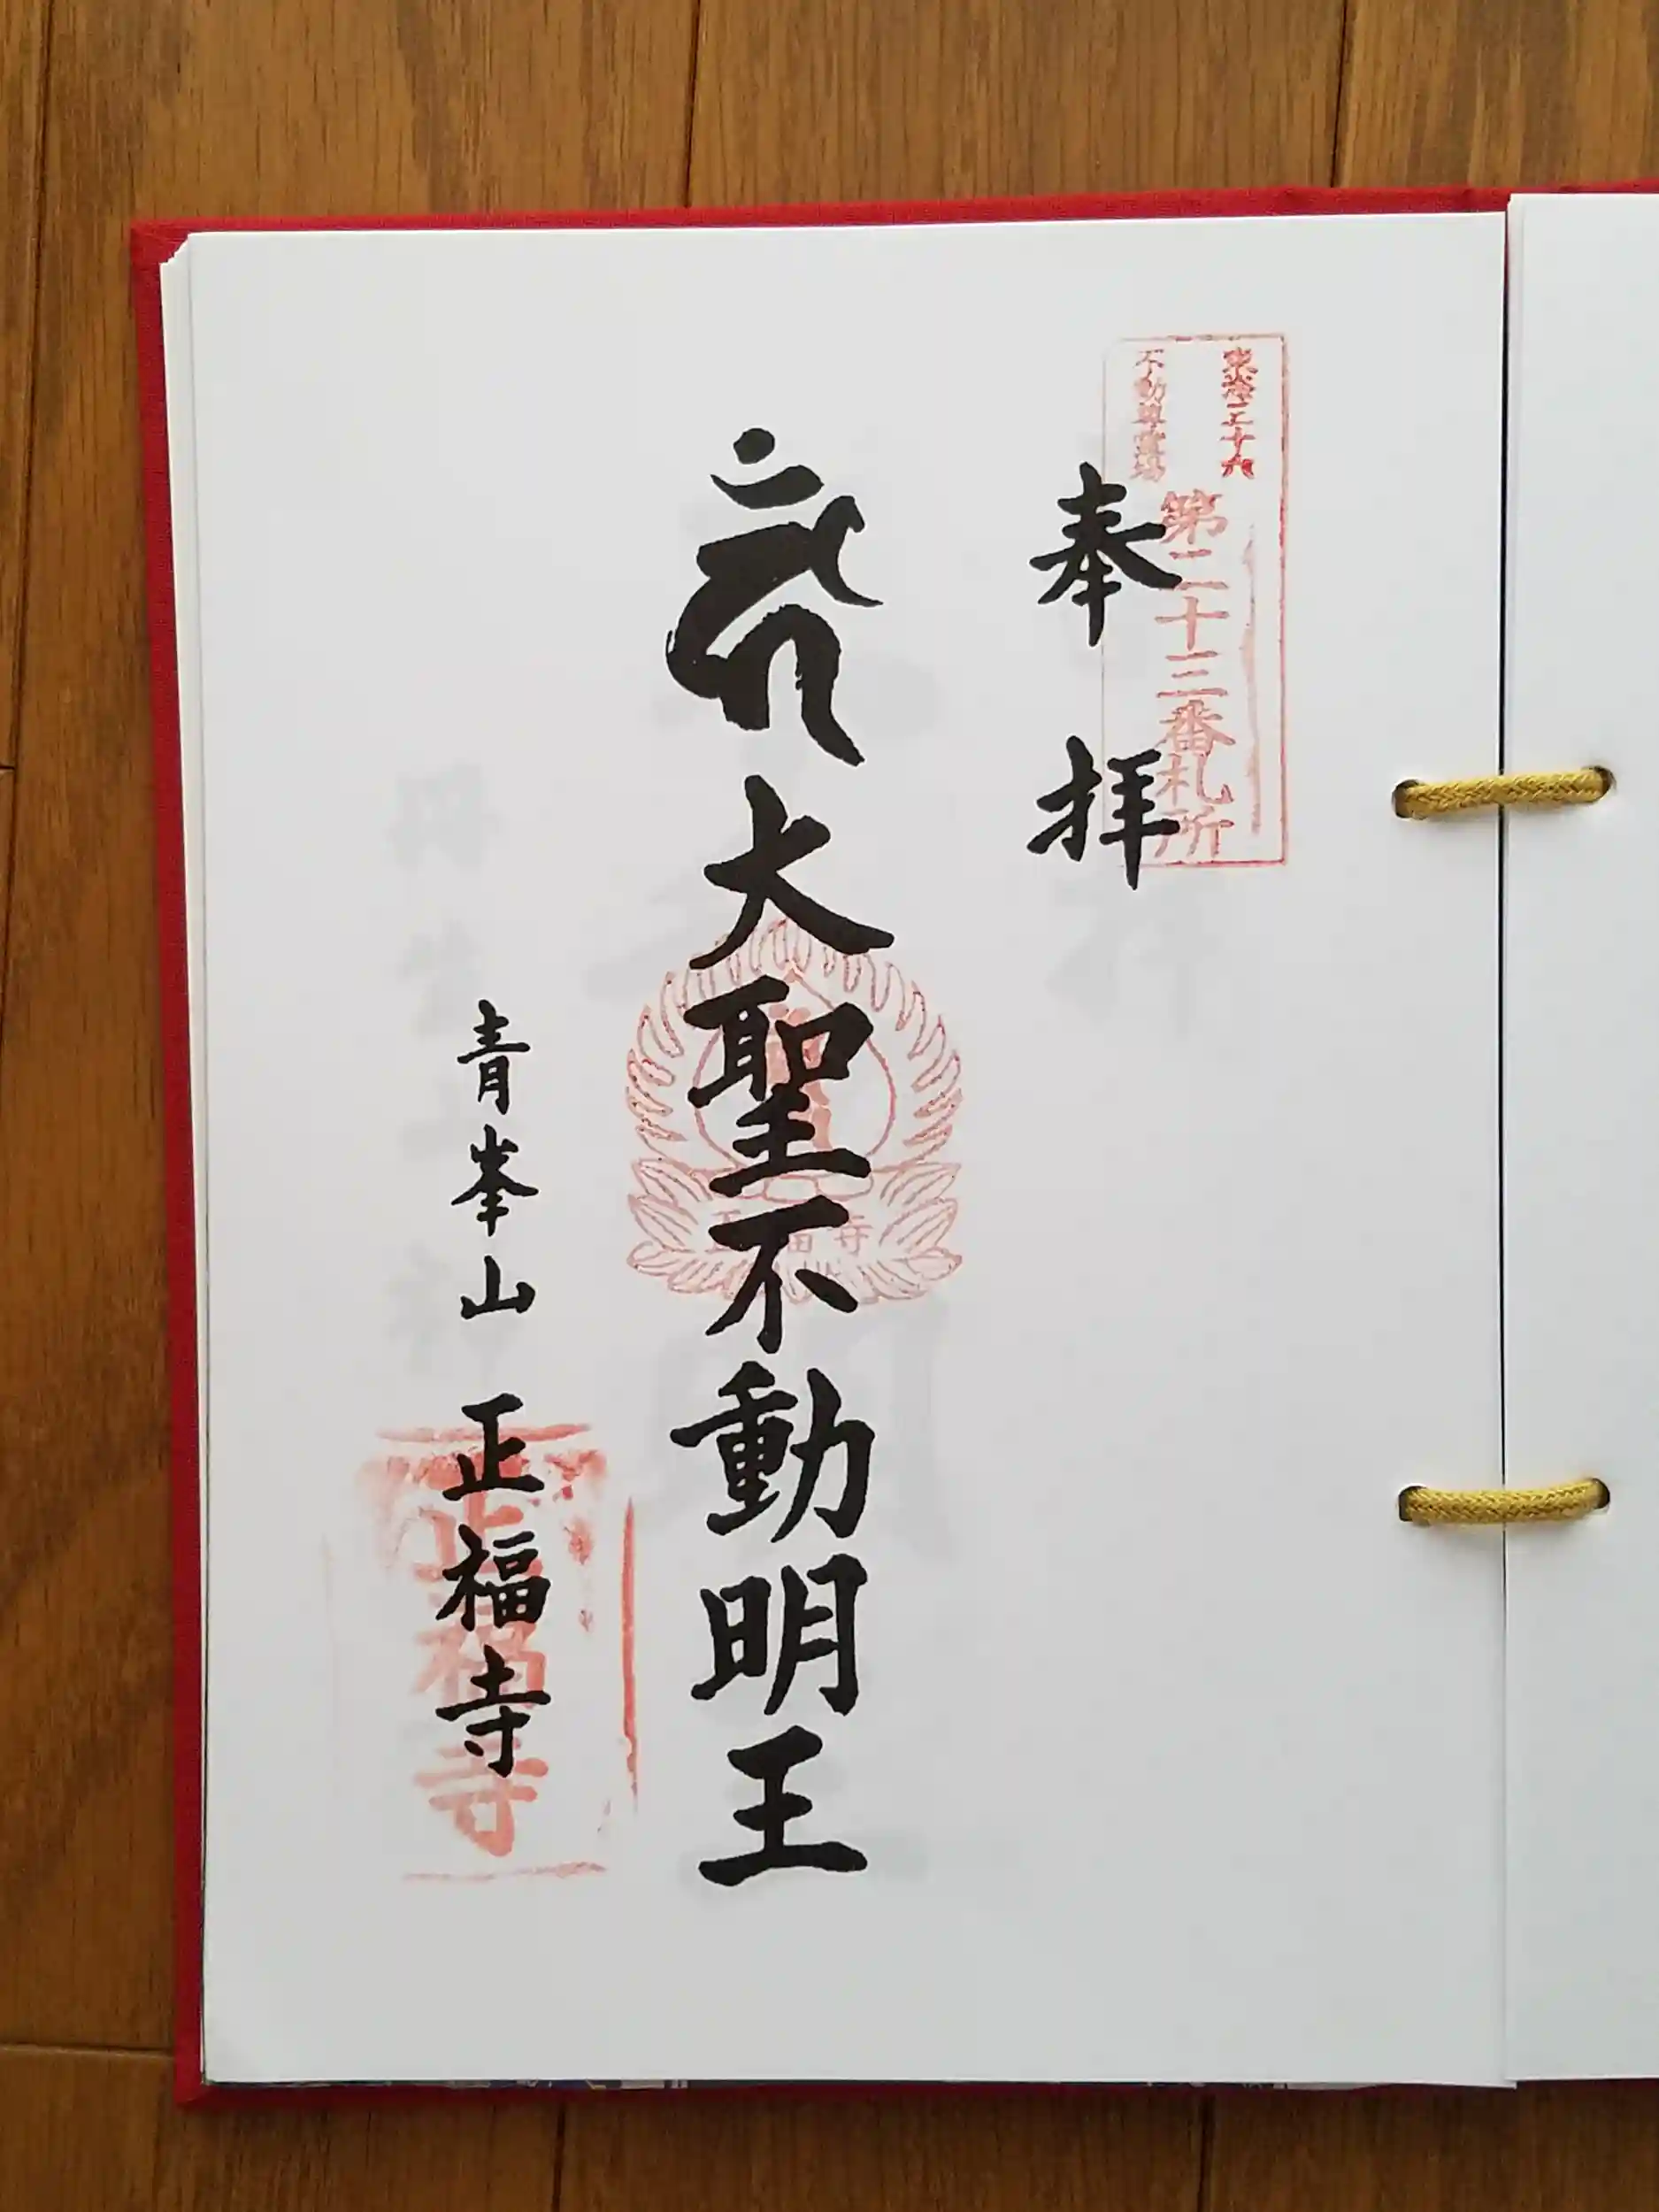 東海三十六
不動尊霊場
第二十三番札所
奉拝
大聖不動明王
正福寺
青峯山 正福寺
正福寺